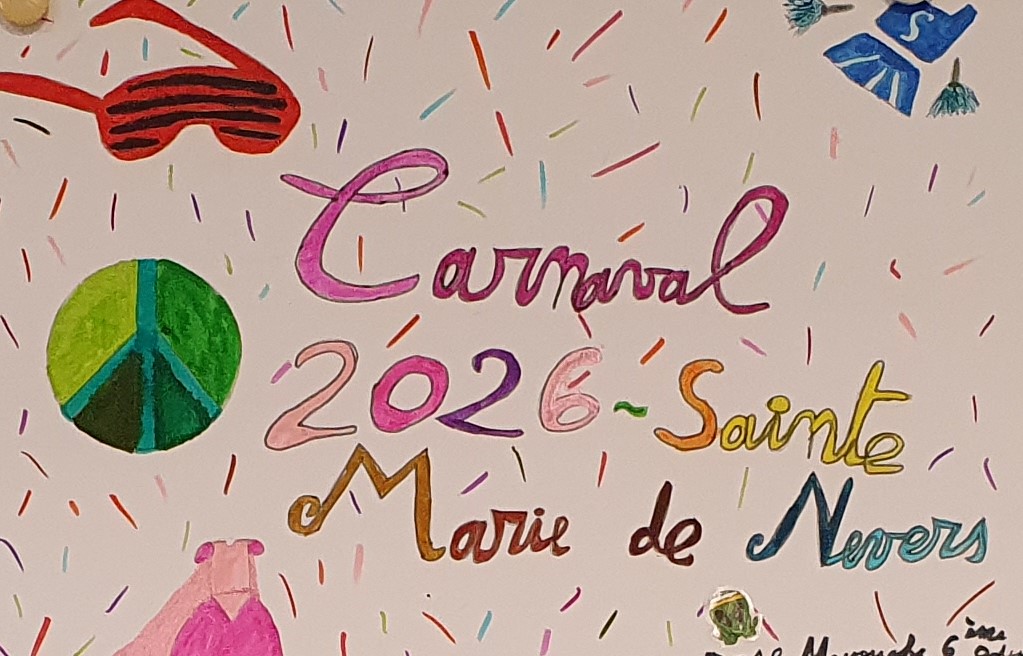 S
Carnaval
2026 ~ Sainte
Marie de Nevers
6ème